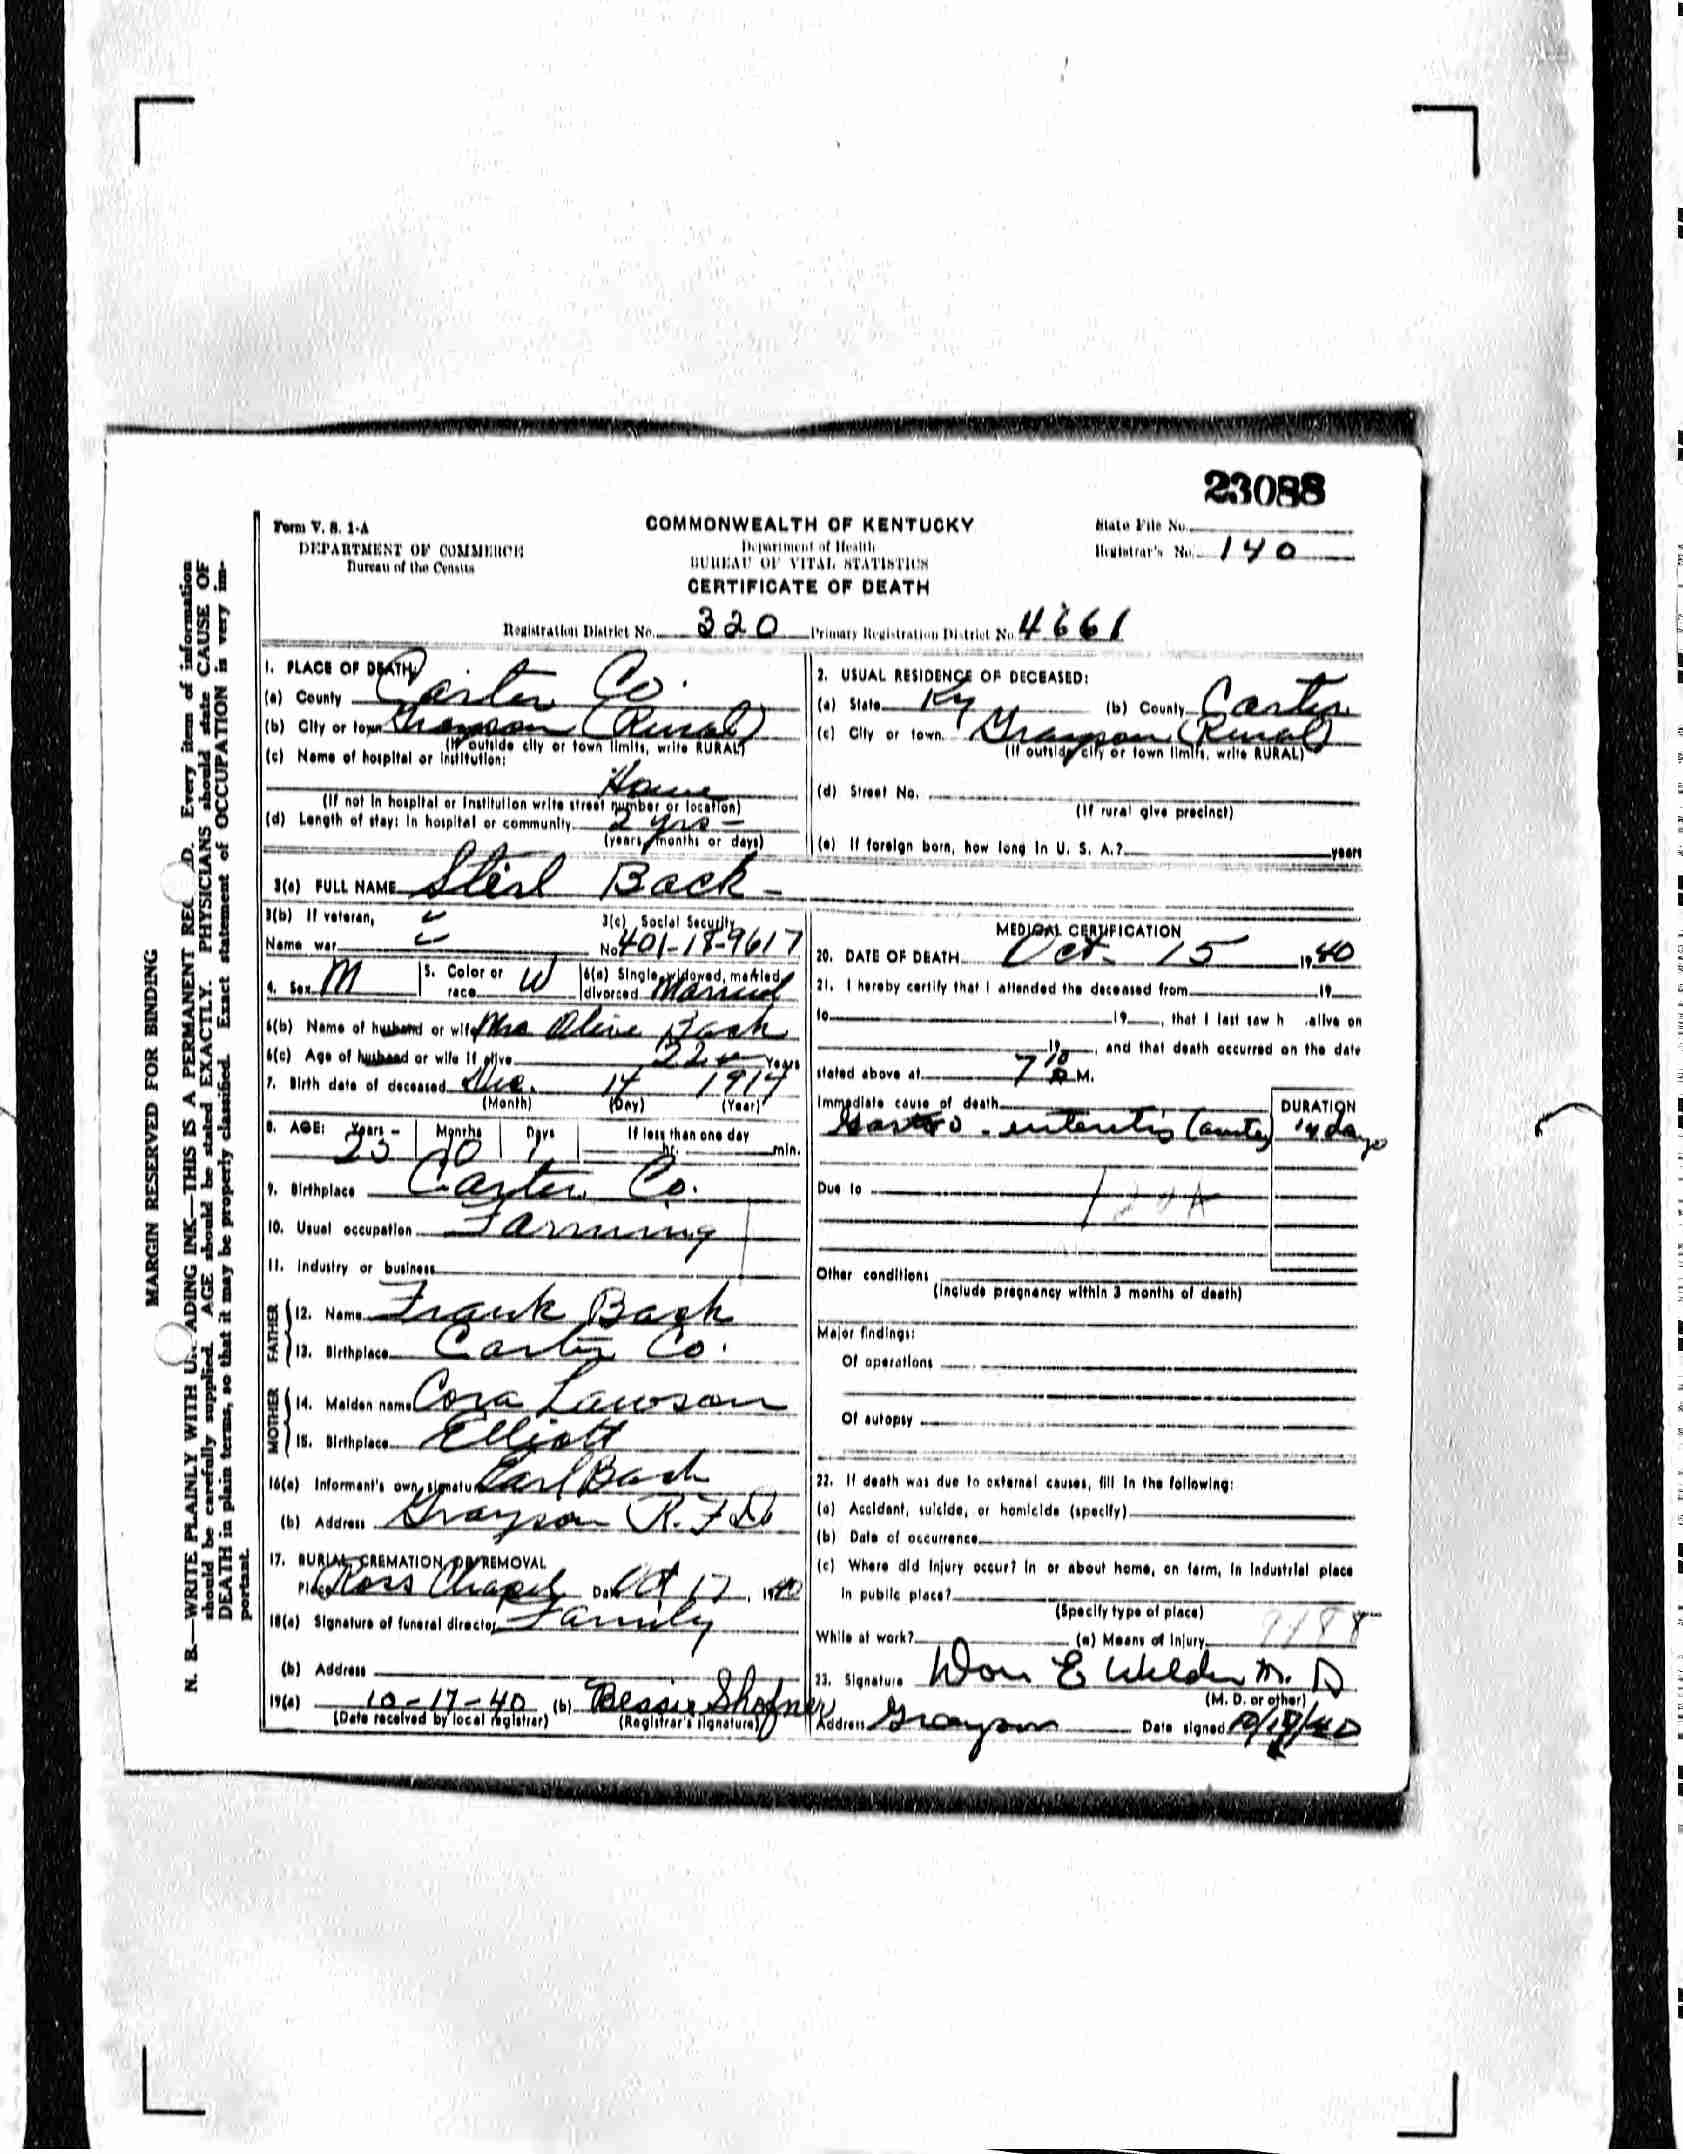 23088
Form V. S. 1-A
DEPARTMENT OF COMMERCE
Bureau of the Census
COMMONWEALTH OF KENTUCKY
Department of Health
BUREAU OF VITAL STATISTICS
CERTIFICATE OF DEATH
State File No.
Registrar's No. 140
Registration District No. 320 Primary Registration District No. 4661
MARGIN RESERVED FOR BINDING
N. B.—WRITE PLAINLY WITH ADING INK—THIS IS A PERMANENT REC D. Every item of information
should be carefully supplied. AGE should be stated EXACTLY. PHYSICIANS should state CAUSE OF
DEATH in plain terms, so that it may be properly classified. Exact statement of OCCUPATION is very im-
portant.
1. PLACE OF DEATH:
(a) County Carter Co.
(b) City or town Grayson (Rural)
(If outside city or town limits, write RURAL)
(c) Name of hospital or institution:
Home
(If not in hospital or institution write street number or location)
(d) Length of stay: In hospital or community 2 yrs -
(years, months or days)
2. USUAL RESIDENCE OF DECEASED:
(a) State Ky (b) County Carter
(c) City or town Grayson (Rural)
(If outside city or town limits, write RURAL)
(d) Street No.
(If rural give precinct)
(e) If foreign born, how long in U. S. A.? years
3(a) FULL NAME Sterl Back -
3(b) If veteran,
Name war
3(c) Social Security
No. 401-18-9617
4. Sex M
5. Color or race W
6(a) Single, widowed, married, divorced Married
6(b) Name of husband or wife Mrs Olive Back
6(c) Age of husband or wife if alive 22 Years
7. Birth date of deceased Dec. 14 1917
(Month) (Day) (Year)
8. AGE: Years - Months Days If less than one day
23 10 1 hr. min.
9. Birthplace Carter Co.
10. Usual occupation Farming
11. Industry or business
FATHER
12. Name Frank Back
13. Birthplace Carter Co.
MOTHER
14. Maiden name Cora Lawson
15. Birthplace Elliott
16(a) Informant's own signature Earl Back
(b) Address Grayson R.F.D.
17. BURIAL, CREMATION, OR REMOVAL
Place Ross Chapel Date Oct 17, 1940
18(a) Signature of funeral director Family
(b) Address
19(a) 10-17-40 (b) Bessie Shofner
(Date received by local registrar) (Registrar's signature)
MEDICAL CERTIFICATION
20. DATE OF DEATH Oct. 15 1940
21. I hereby certify that I attended the deceased from 19
to 19 , that I last saw h alive on
19 , and that death occurred on the date
stated above at 7 10 P M.
Immediate cause of death
Gastro-enteritis (acute)
DURATION
14 days
Due to
Other conditions
(Include pregnancy within 3 months of death)
Major findings:
Of operations
Of autopsy
22. If death was due to external causes, fill in the following:
(a) Accident, suicide, or homicide (specify)
(b) Date of occurrence
(c) Where did injury occur? In or about home, on farm, in industrial place
in public place?
(Specify type of place)
While at work? (e) Means of injury
23. Signature Don E Wilder M. D
(M. D. or other)
Address Grayson Date signed